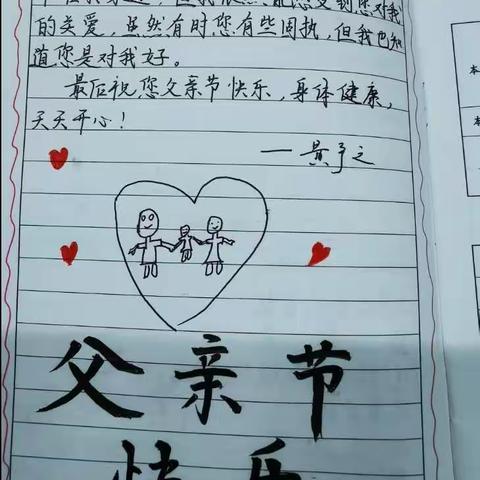 的关爱，虽然有时您有些固执，但我也知
道您是对我好。
最后祝您父亲节快乐，身体健康，
天天开心！
——黄予之
父亲节
快乐
本
本